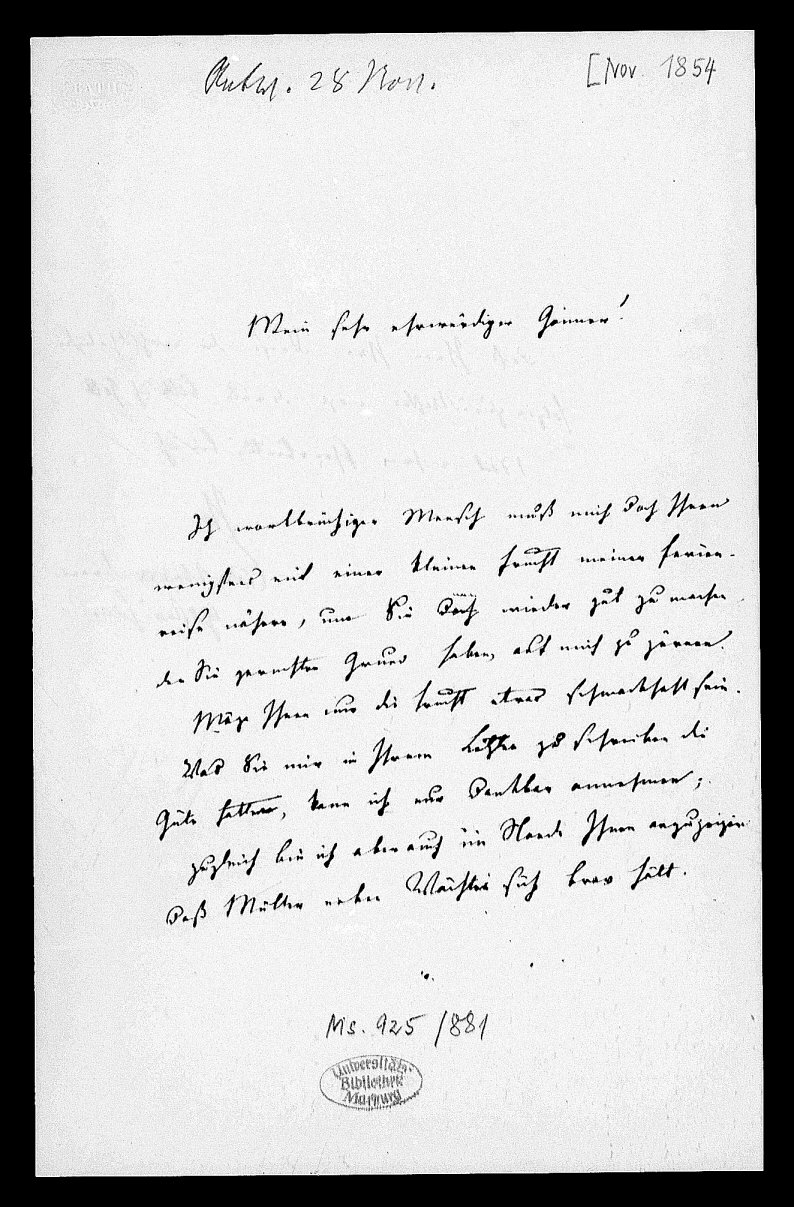 Antw. 28 Nov.
[Nov 1854
Mein sehr ehrwürdiger Gönner!
Ich wortbrüchiger Mensch muß mich doch Ihnen
wenigstens mit einer kleinen Frucht meiner Ferien-
reise nähern, um Sie doch wieder gut zu machen,
da Sie gerechten Grund haben, auf mich zu zürnen.
Möge Ihnen nur die Frucht etwas schmackhaft sein.
Was Sie mir in Ihrem Letzten zu schreiben die
Güte hatten, kann ich nur dankbar annehmen;
zugleich bin ich aber auch im Stande Ihnen anzuzeigen
daß Müller neben Wächter sich brav hält.
Ms. 925/881
Universitäts-
Bibliothek
Marburg